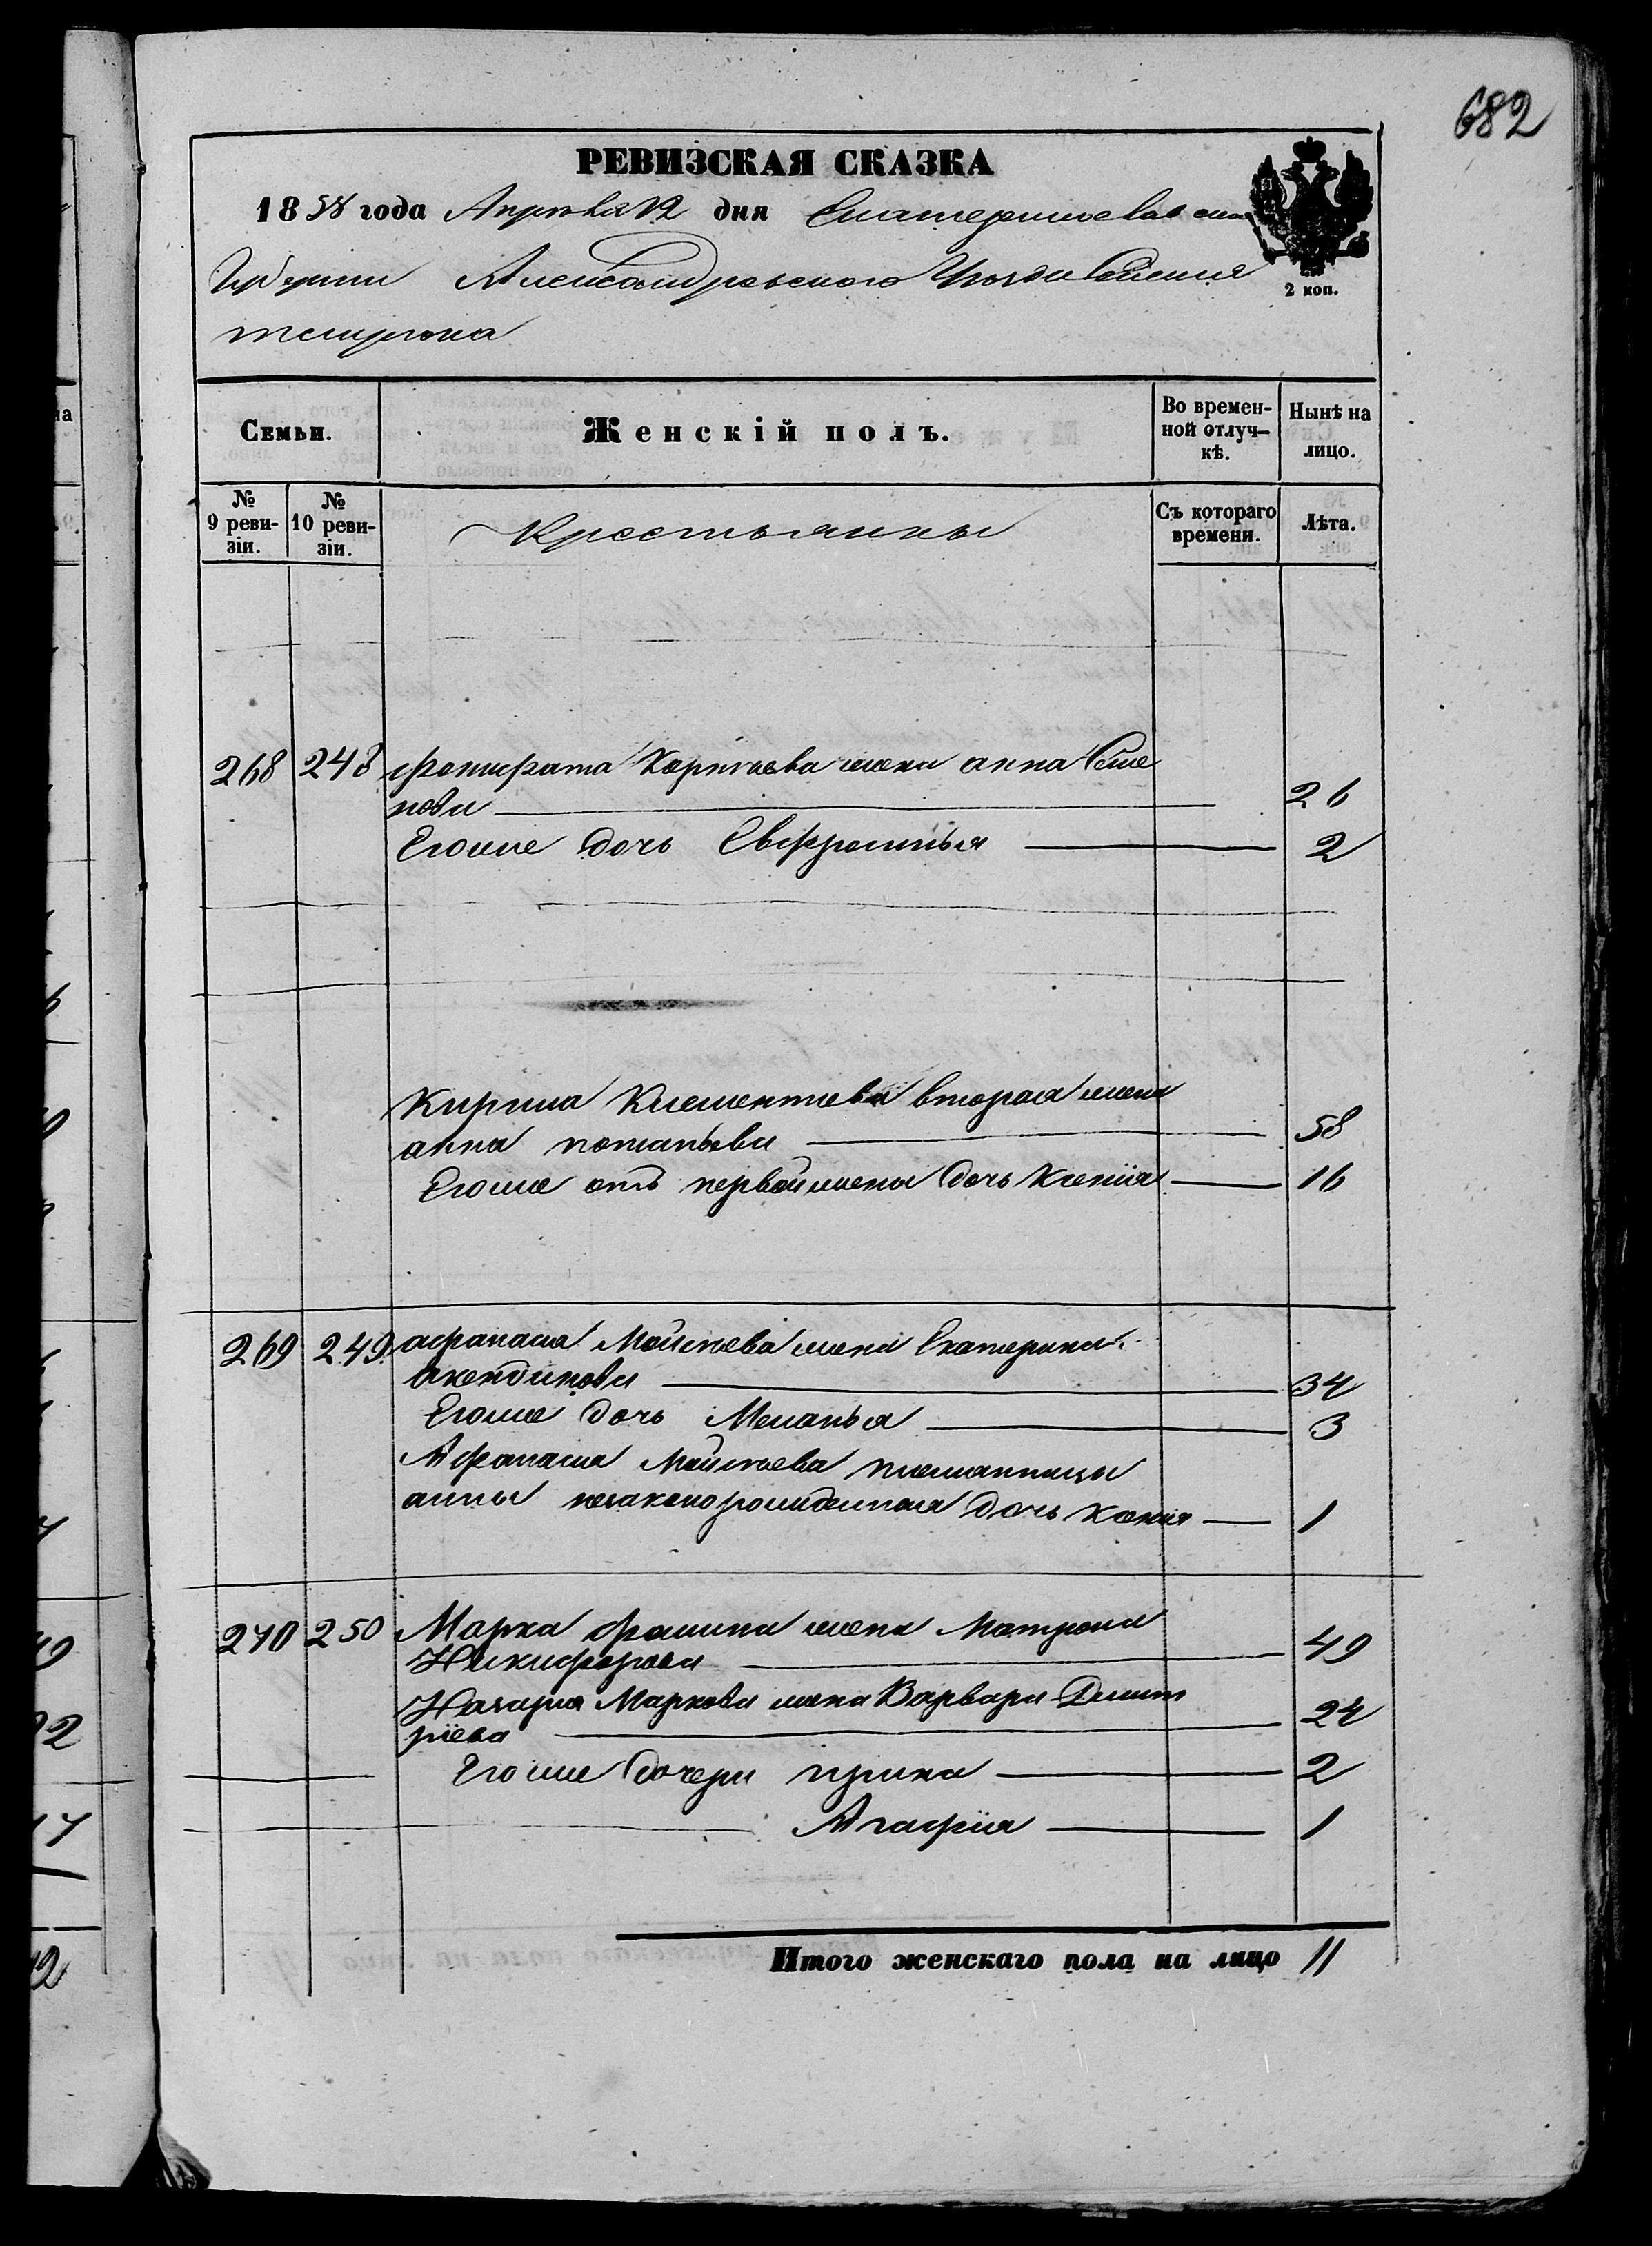 682
РЕВИЗСКАЯ СКАЗКА
1858 года Апреля 12 дня Екатеринославской
Губернии Александровского Уезда Селения
2 коп.
Семьи.
Женскій полъ.
Во времен-
ной отлуч-
кѣ.
Нынѣ на
лицо.
№
9 реви-
зіи.
№
10 реви-
зіи.
Крестьянны
Съ котораго
времени.
Лѣта.
268 248 Корнѣева жена анна Семе
нова 26
Егоже дочь Евфросинья 2
Кирила Климентиева вторая жена
анна потапова 58
Егоже отъ первой жены дочь Ксенія 16
269 249 афанасия Мойсѣева жена Екатерина
34
Егоже дочь Меланья 3
Афанасия Мойсѣева племянницы
анны незаконорожденная дочь Ксения 1
270 250 Марка фомина жена Матрона
Никифорова 49
Назария Маркова жена Варвара Дмит
ріева 24
Егоже дочери ирина 2
Агафія 1
Итого женскаго пола на лицо 11